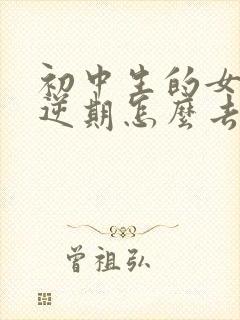 初中生的女
逆期怎麼去
曾祖弘